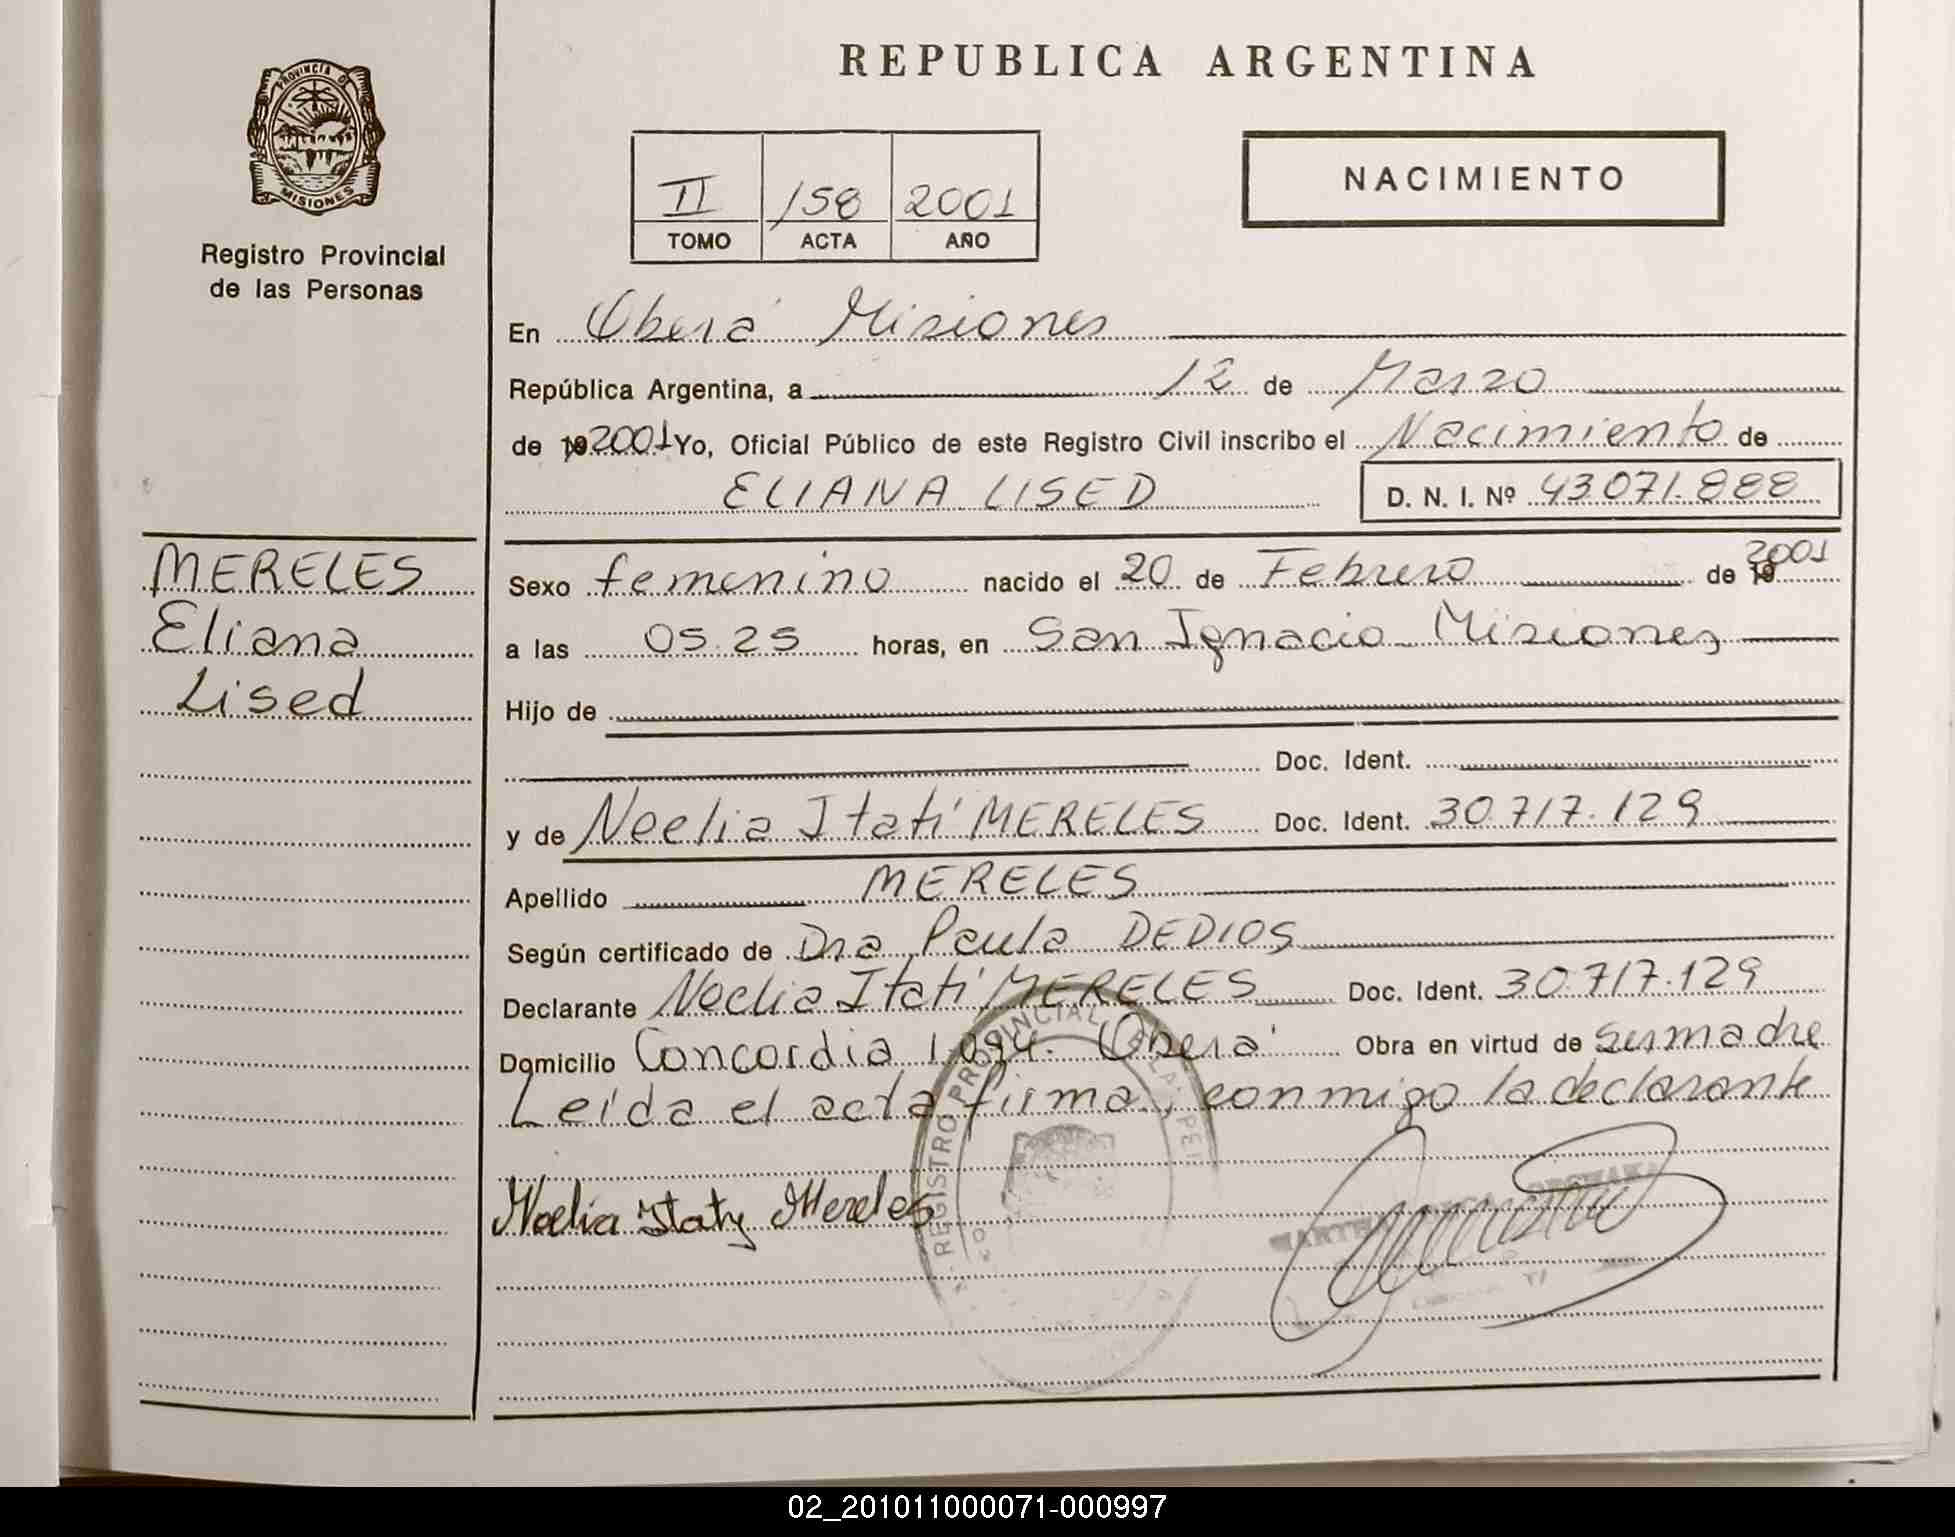 PROVINCIA DE
MISIONES
Registro Provincial
de las Personas
MERELES
Eliana
Lised
REPUBLICA ARGENTINA
II 158 2001
TOMO ACTA AÑO
NACIMIENTO
En Oberá Misiones
República Argentina, a 12 de Marzo
de 19 2001 Yo, Oficial Público de este Registro Civil inscribo el Nacimiento de
ELIANA LISED D. N. I. Nº 43.071.888
Sexo femenino nacido el 20 de Febrero de 19 2001
a las 05.25 horas, en San Ignacio Misiones
Hijo de
Doc. Ident.
y de Noelia Itatí MERELES Doc. Ident. 30.717.129
Apellido MERELES
Según certificado de Dra Paula DEDIOS
Declarante Noelia Itatí MERELES Doc. Ident. 30.717.129
Domicilio Concordia 1.094. Oberá Obra en virtud de ser madre
Leída el acta firma, conmigo la declarante
Noelia Itaty Mereles
REGISTRO PROVINCIAL
02_201011000071-000997